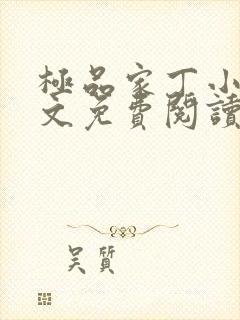 極品家丁小
文免費閱讀
吴質